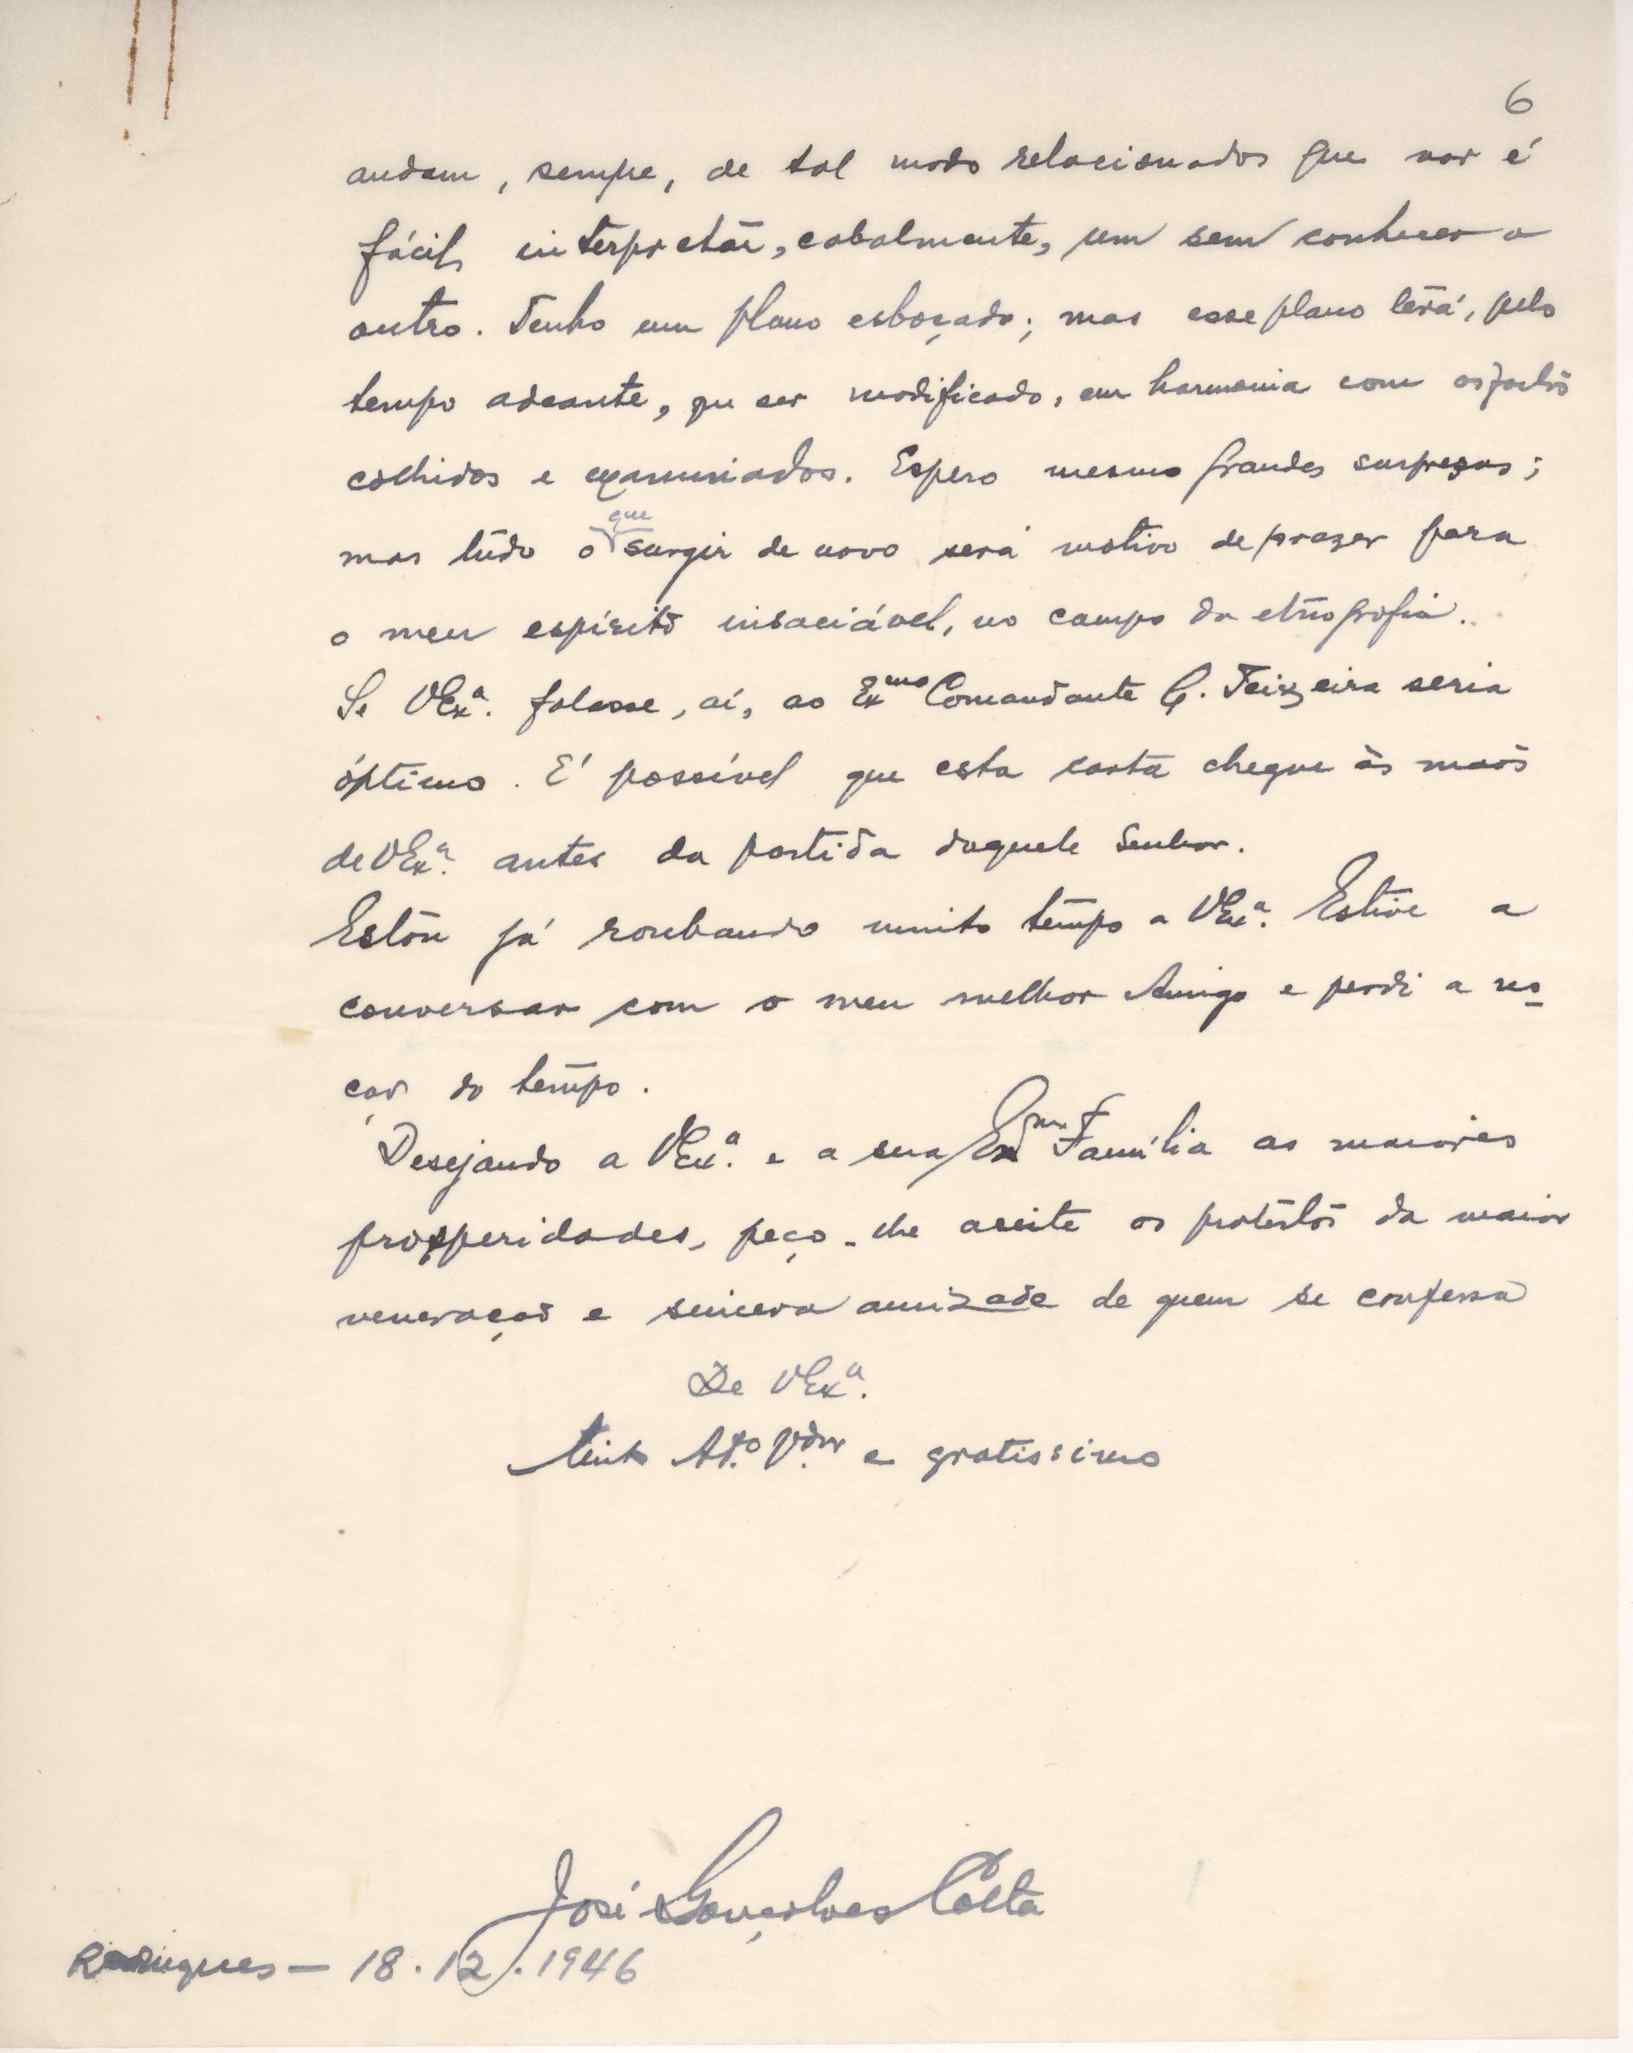 6
andam, sempre, de tal modo relacionados que não é
fácil interpretar, cabalmente, um sem conhecer o
outro. Tenho um plano esboçado; mas esse plano terá, pelo
tempo adeante, que ser modificado, em harmonia com os factos
colhidos e examinados. Espero mesmo grandes surpresas;
mas tudo o que surgir de novo será motivo de prazer para
o meu espírito insaciável, no campo da etnografia.
Se VExª. falasse, aí, ao Exmo Comandante G. Teixeira seria
óptimo. É possível que esta carta chegue às mãos
de VExª. antes da partida daquele Senhor.
Estou já roubando muito tempo a VExª. Estive a
conversar com o meu melhor Amigo e perdi a no-
ção do tempo.
Desejando a VExª. e a sua Exma Família as maiores
prosperidades, peço-lhe aceite os protestos da maior
veneração e sincera amizade de quem se confessa
De VExª.
Muito Atº. Vdor e gratissimo
José Gonçalves Costa
Rodrigues - 18.12.1946